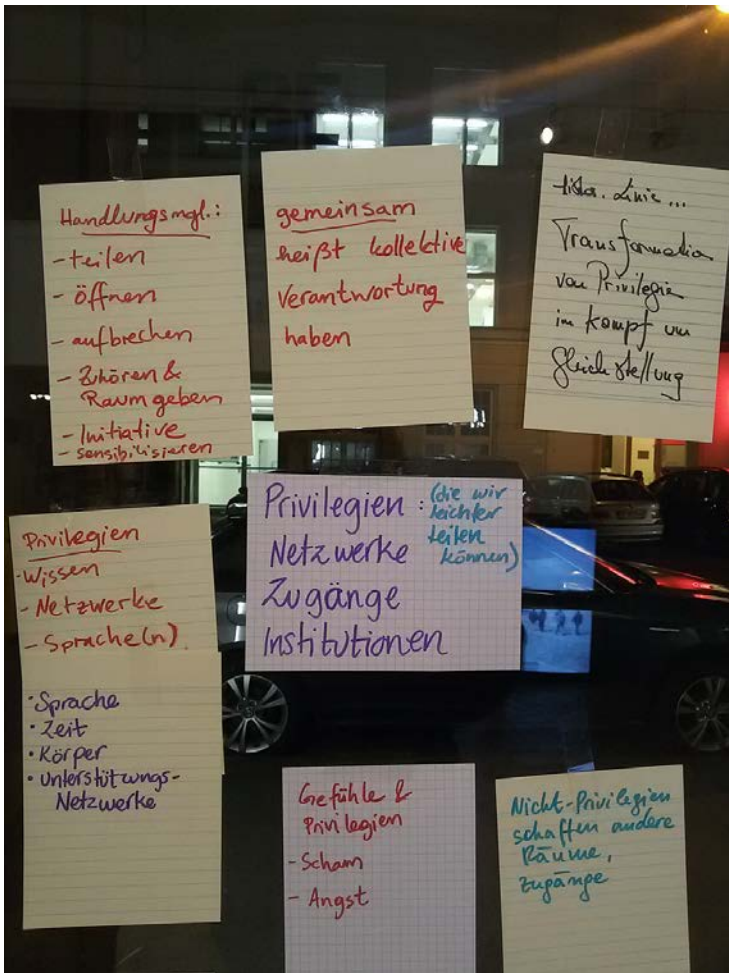 Handlungsmgl.:
- teilen
- öffnen
- aufbrechen
- Zuhören &
Raum geben
- Initiative
- sensibilisieren
gemeinsam
heißt kollektive
Verantwortung
haben
histor. Linie...
Transformation
von Privilegien
im Kampf um
Gleichstellung
Privilegien : (die wir
leichter
teilen
können)
Netzwerke
Zugänge
Institutionen
Privilegien
- Wissen
- Netzwerke
- Sprache(n)
• Sprache
• Zeit
• Körper
• Unterstützungs-
Netzwerke
Gefühle &
Privilegien
- Scham
- Angst
Nicht-Privilegien
schaffen andere
Räume,
Zugänge